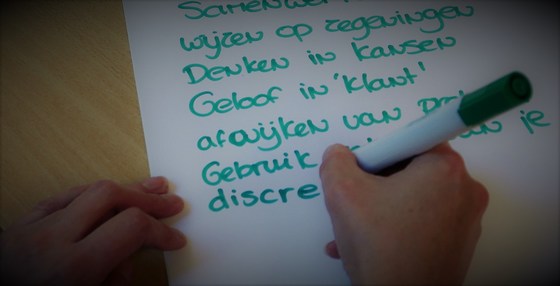 Samenwer
wijzen op regevingen
Denken in kansen
Geloof in 'klant'
afwijken van pro
Gebruik van je
discre